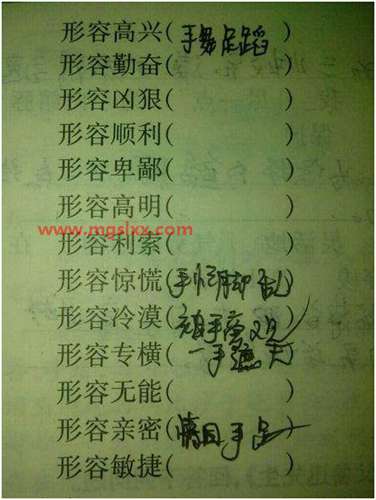 形容高兴(手舞足蹈)
形容勤奋( )
形容凶狠( )
形容顺利( )
形容卑鄙( )
形容高明( )
www.mgshxx.com
形容利索( )
形容惊慌(手忙脚乱)
形容冷漠(袖手旁观)
形容专横(一手遮天)
形容无能( )
形容亲密(情同手足)
形容敏捷( )